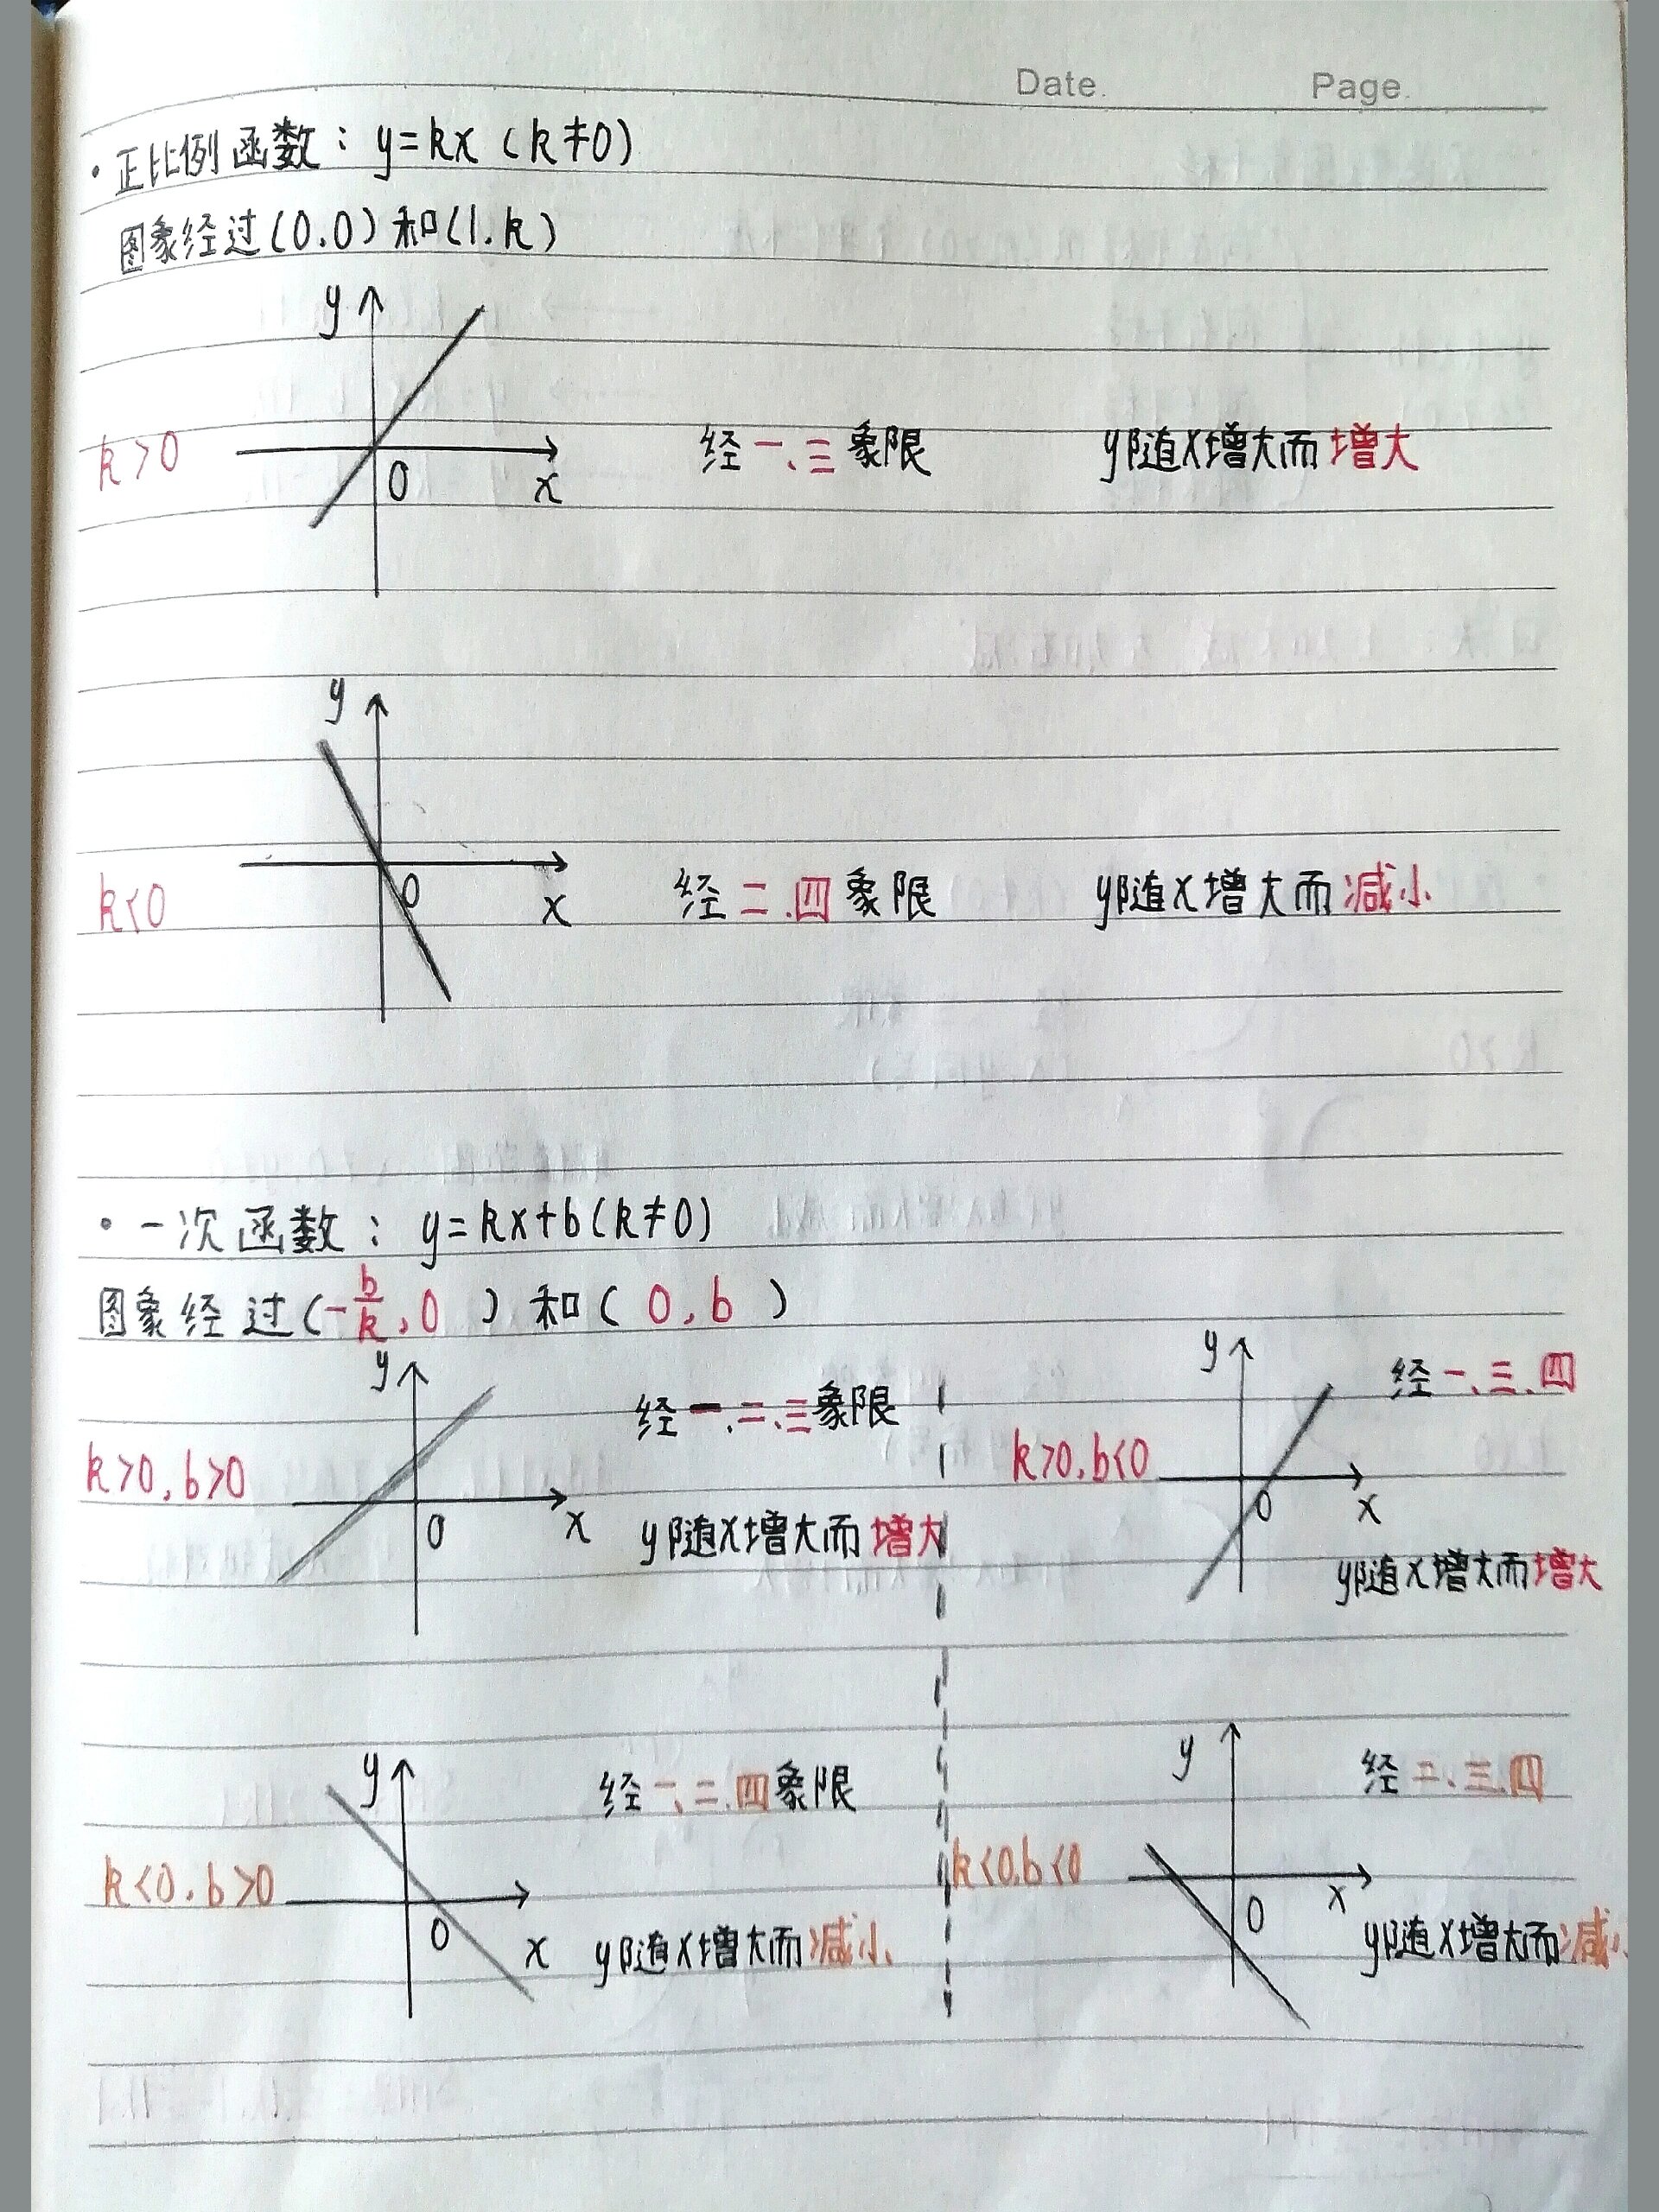 Date. Page.
·正比例函数：y=kx（k≠0）
图象经过(0.0)和(1.k)
y
k>0
0
x
经一、三象限
y随x增大而增大
y
k<0
0
x
经二.四象限
y随x增大而减小
·一次函数：y=kx+b(k≠0)
图象经过(-b/k,0)和(0,b)
y
经一、二、三象限
k>0,b>0
0
x
y随x增大而增大
y
经一、三、四
k>0,b<0
0
x
y随x增大而增大
y
经一、二.四象限
k<0.b>0
0
x
y随x增大而减小
y
经二、三.四
k<0.b<0
0
x
y随x增大而减小